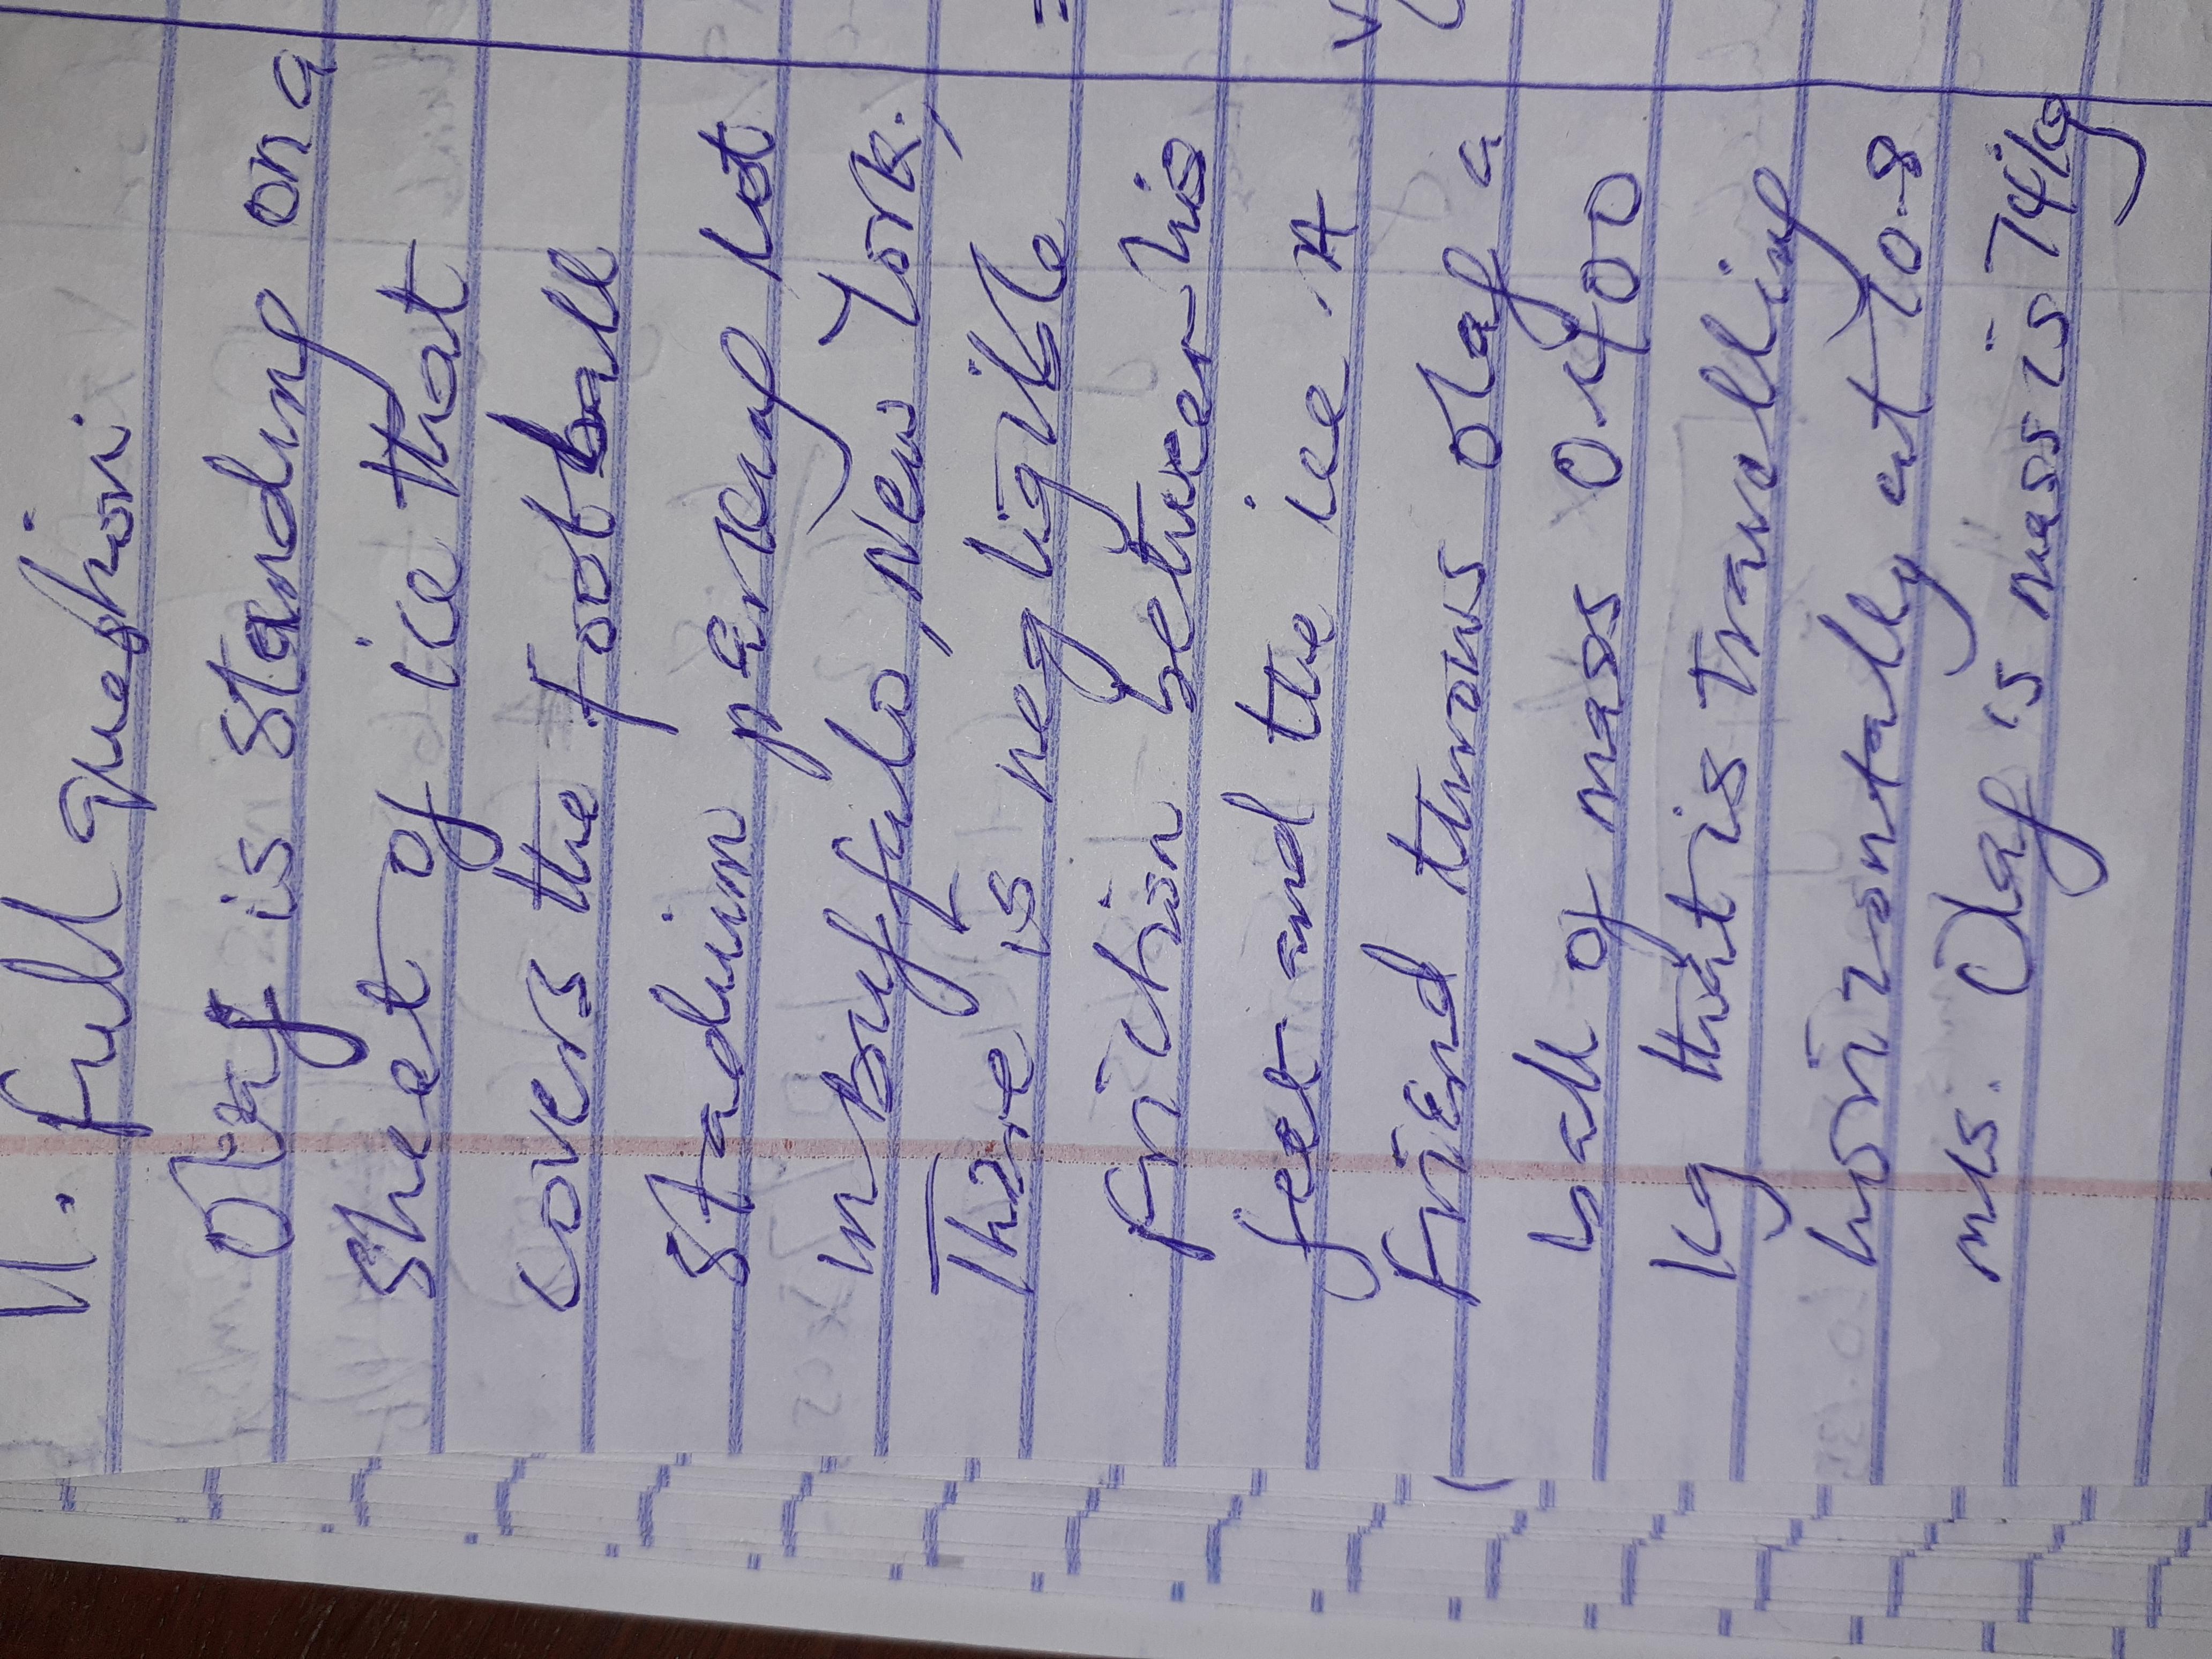 11. full question
Olaf is standing on a
sheet of ice that
covers the football
stadium parking lot
in Buffalo, New York.,
There is negligible
friction between his
feet and the ice. A
friend throws olaf a
ball of mass 0.400
kg that is travelling
horizontally at 10.8
m/s. Olaf is mass is 74kg